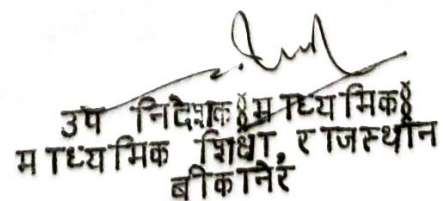 उप निदेशक ॰माध्यमिक॰
माध्यमिक शिक्षा राजस्थान
बीकानेर